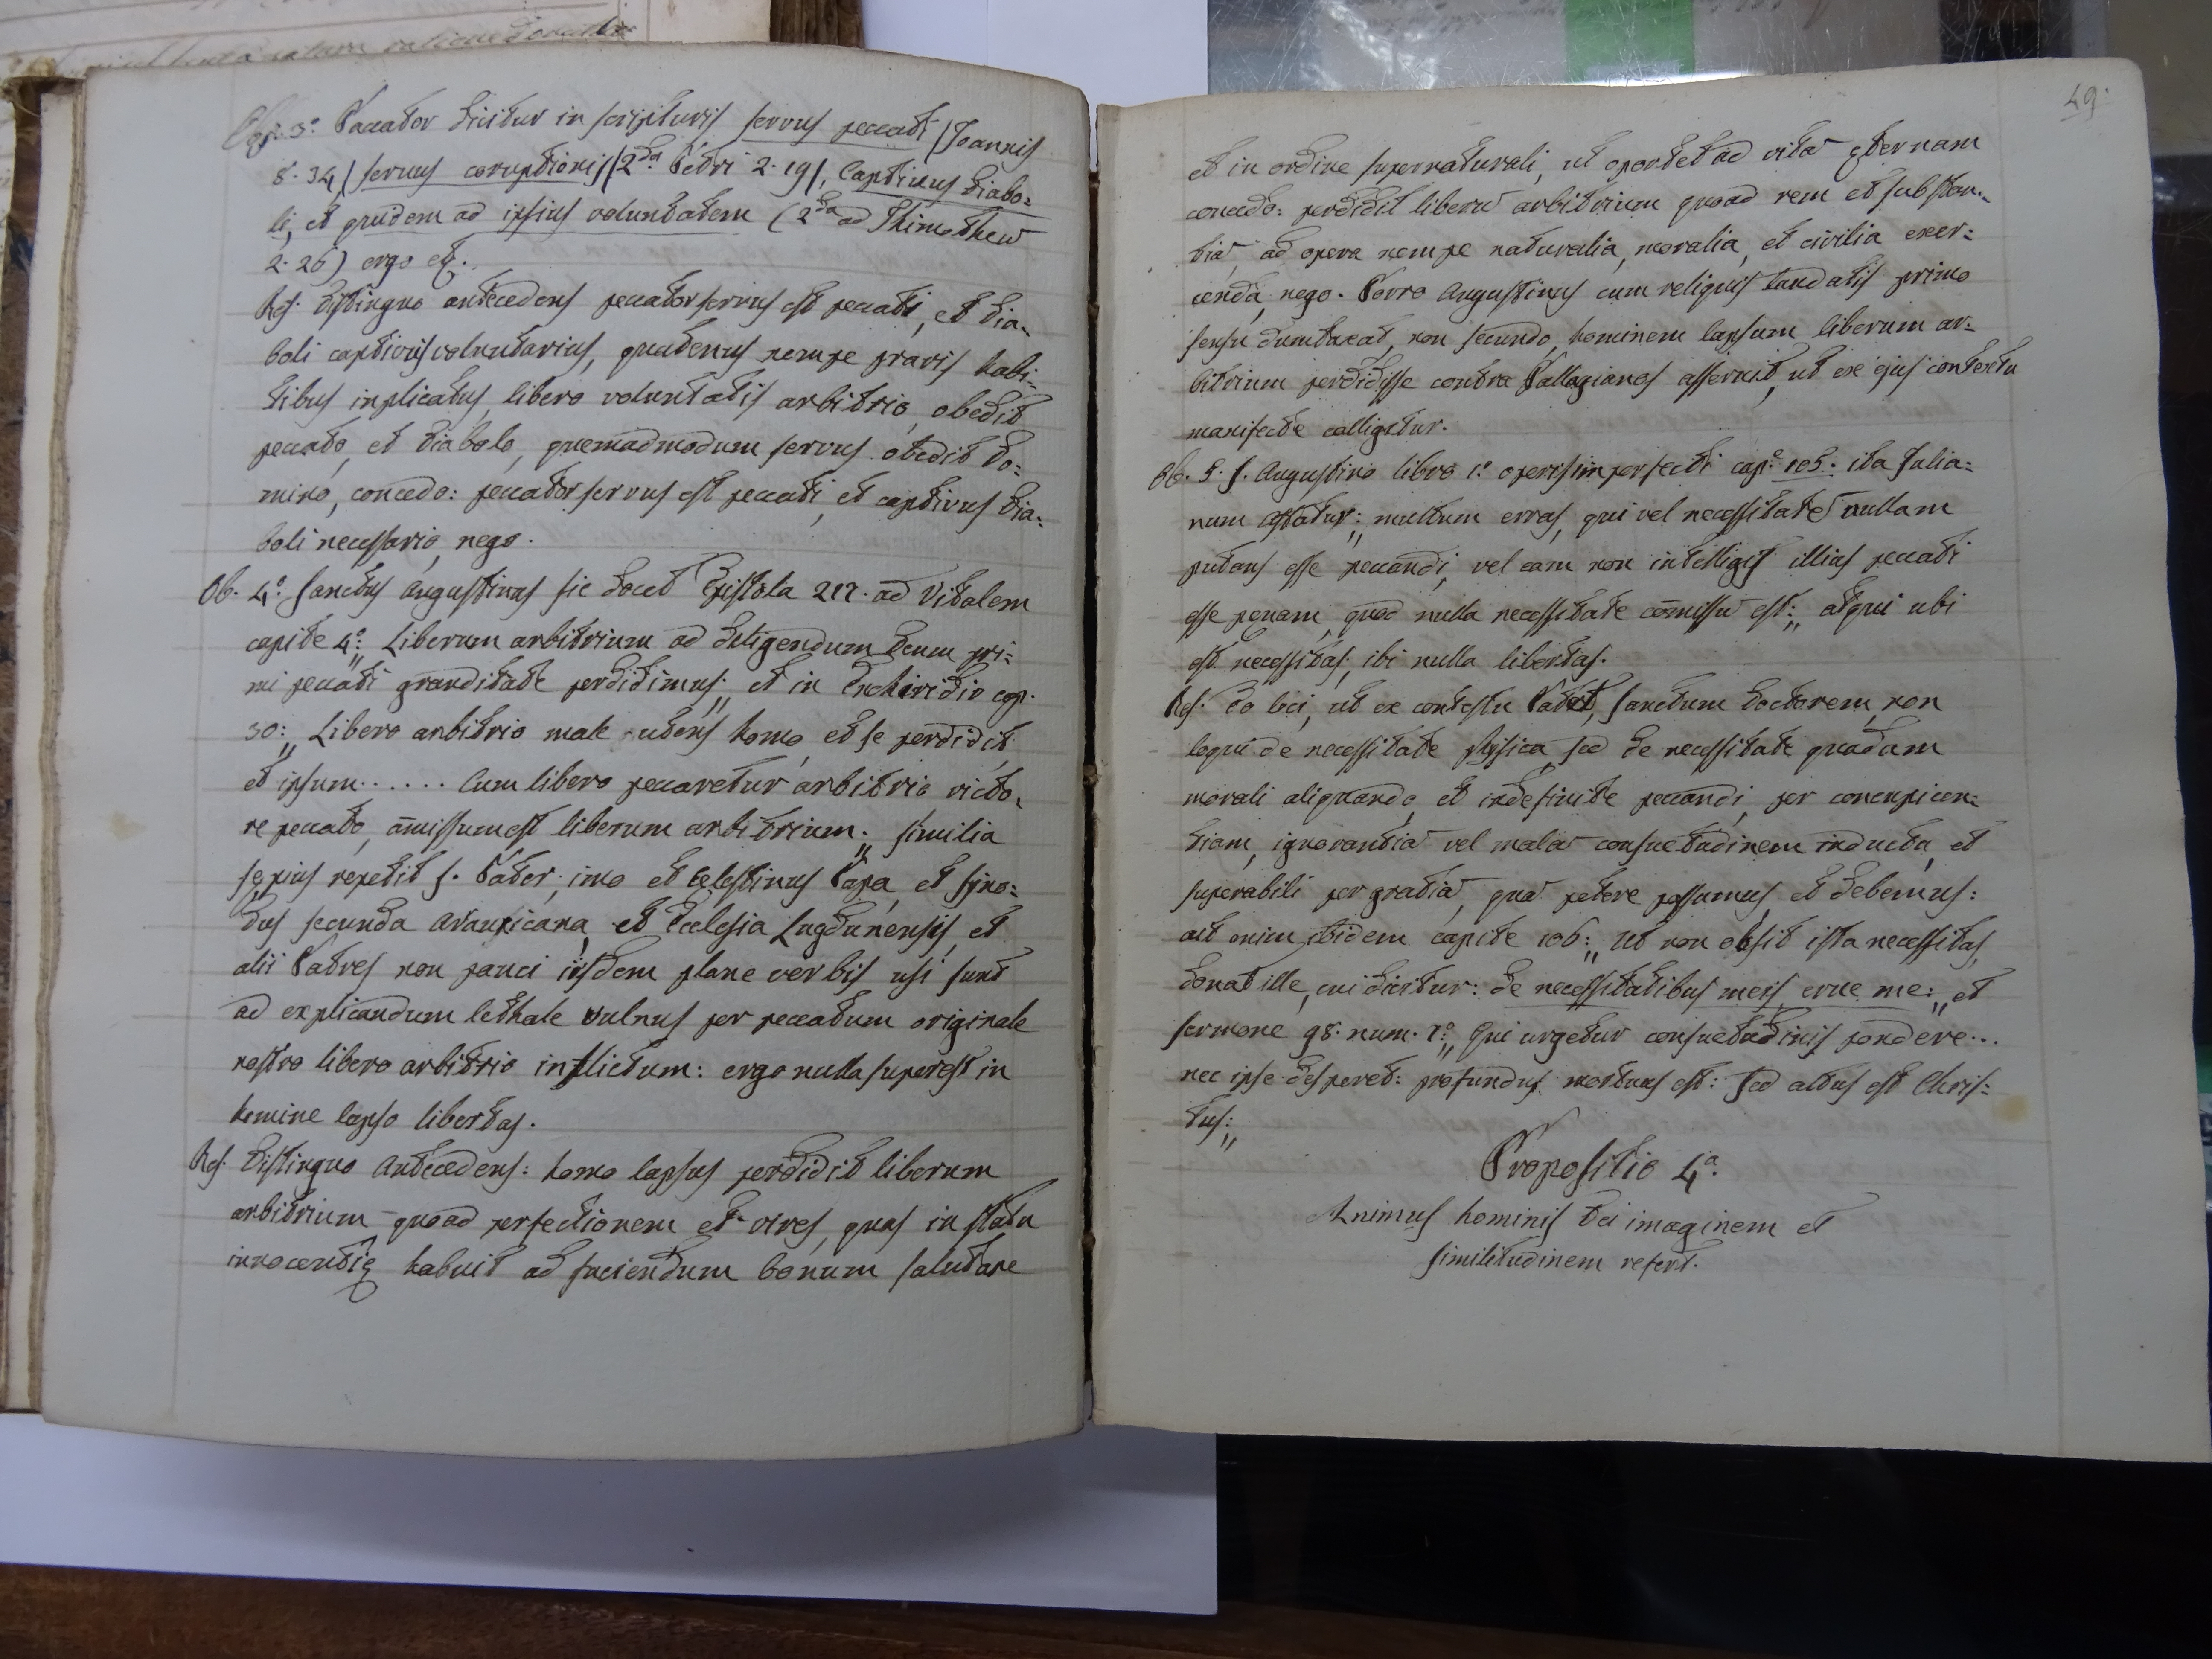 Peccator dicitur in scripturis servus peccati (Joannis
8. 34) servus coruptionis (2da Petri 2. 19), Captivus diabo=
li, et quidem ad ipsius voluntatem (2da ad Thimotheũ
2. 26) ergo etc.
Res. Distinguo antecedens peccator servus est peccati, et dia=
boli captivus voluntarius, quatenus nempe pravis habi=
tibus inplicatus, libero voluntatis arbitrio, obedit
peccato, et diabolo, quemadmodum servus obedit do=
mino, concedo: peccator servus est peccati, et captivus dia=
boli necessario, nego.
Ob. 4º. Sanctus Augustinus sic docet Epistola 217. ad Vitalem
capite 4º: „ Liberum arbitrium ad diligendum Deum pri=
mi peccati granditate perdidimus: „ et in Enchiridio cap.
30: „ Libero arbitrio male utens homo, et se perdidit
et ipsum...... Cum libero peccaretur arbitrio, victo=
re peccato, amissum est liberum arbitrium: „ similia
sępius repetit S. Pater; imo et Cęlestinus Papa, et Syno=
dus secunda Arauxicana, et Ecclesia Lugdunensis, et
alii Patres non pauci iisdem plane verbis usi sunt
ad explicandum lethale vulnus per peccatum originale
nostro libero arbitrio inflictum: ergo nulla superest in
homine lapso libertas.
Res. Distinguo Antecedens: homo lapsus perdidit liberum
arbitrium quoad perfectionem et vires, quas in statu
innocentię habuit ad faciendum bonum salutare
49.
et in ordine supernaturali, ut oportet ad vitã ęternam
concedo: perdidit liberũ arbitrium quoad rem et substan=
tiã, ad opera nempe naturalia, moralia, et civilia exer=
cenda, nego. Porro Augustinus cum reliquis laudatis primo
sensu dumtaxat, non secundo, hominem lapsum liberum ar=
bitrium perdidisse contra Pallagianos asseruit, ut ex ejus contextu
manifecte colligitur.
Ob. 5. S. Augustino libro 1º. operis imperfecti capº. 105. ita Julia=
num affatur: „ multum erras, qui vel necessitatẽ nullam
putas esse peccandi, vel eam non intelligis illius peccati
esse pęnam, quod nulla necessitate cõmissũ est: „ atqui ubi
est necessitas, ibi nulla libertas.
Res. Eo loci, ut ex contestu Patet, Sanctum Doctorem, non
loqui de necessitate physica, sed de necessitate quadam
morali aliquando, et indefinite peccandi, per concupicen=
tiam, ignorantiã vel malã consuetudinem inducta, et
superabili per gratiã, quã petere possumus, et debemus:
ait enim ibidem capite 106: „ Ut non obsit ista necessitas,
donat ille, cui dicitur: de necessitatibus meis erue me: „ et
sermone 98. num. 7º. „ Qui urgetur consuetudinis pondere...
nec ipse desperet: profundus mortuus est: sed altus est Chris=
tus: „
Propositio 4ª.
Animus hominis Dei imaginem et
similitudinem refert.